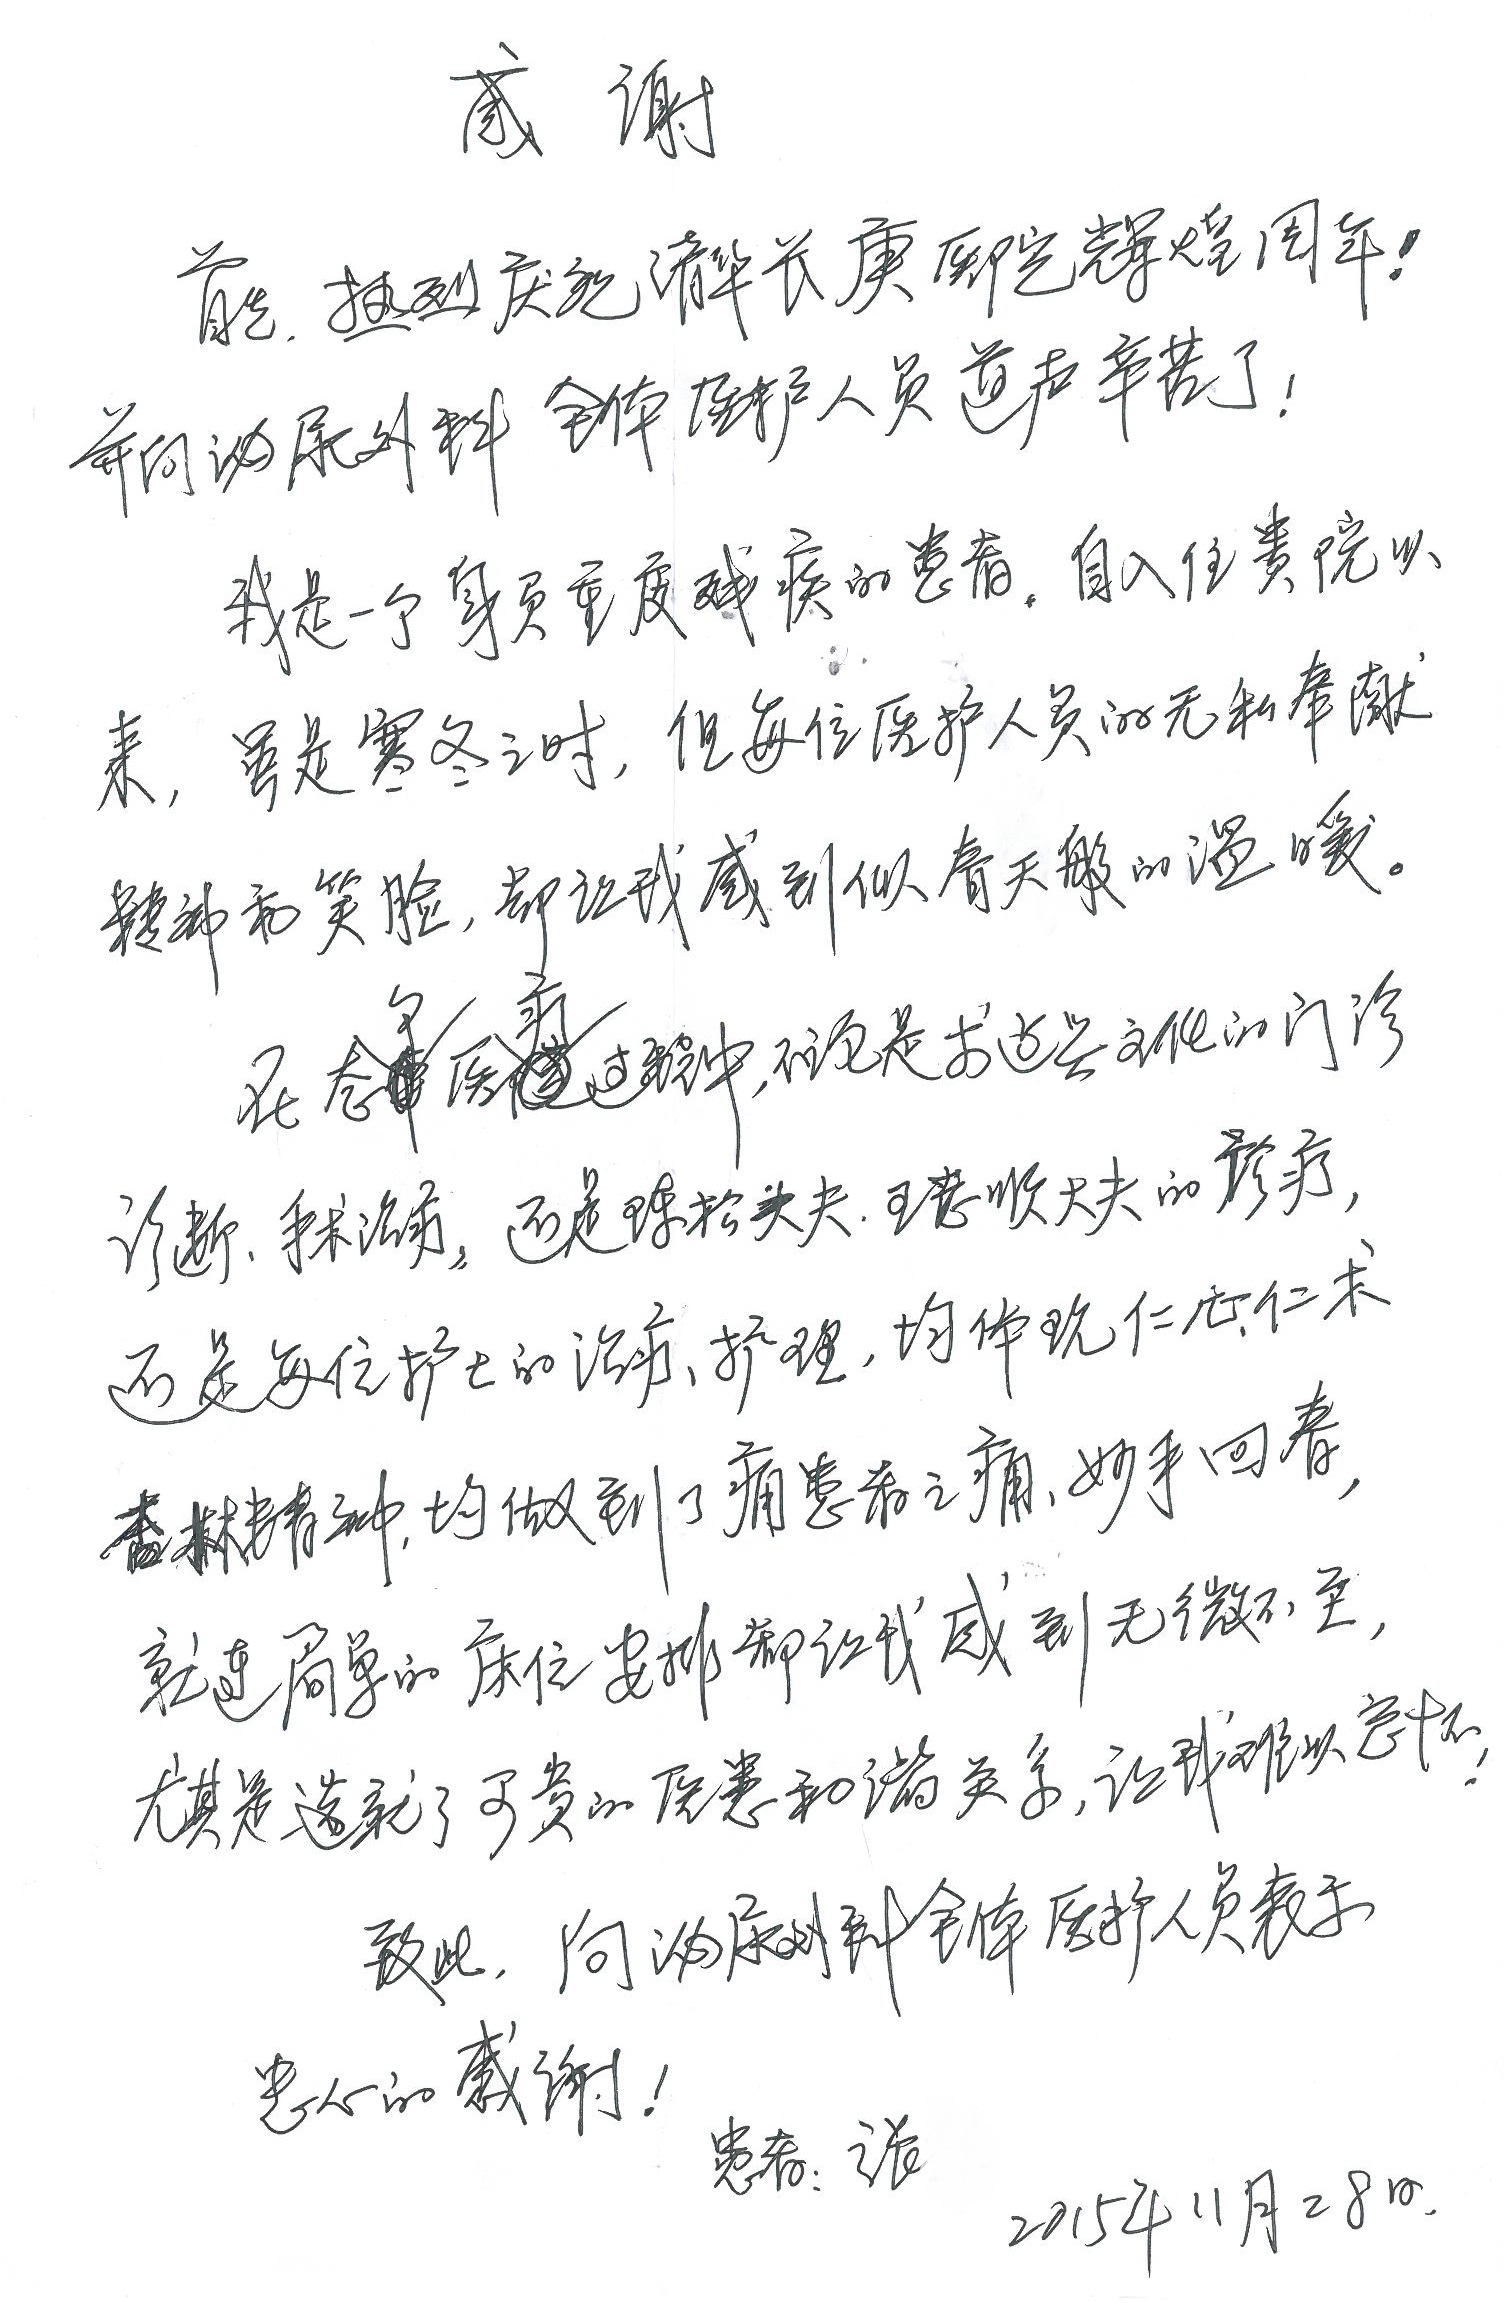 感谢
首先，热烈庆祝清华长庚医院辉煌周年！
并向泌尿外科全体医护人员道声辛苦了！
我是一个身负重度残疾的患者。自入住贵院以
来，虽是寒冬之时，但每位医护人员的无私奉献
精神和笑脸，都让我感到似春天般的温暖。
在个医疗过程中，不论是文化的门诊
诊断、手术治疗，还是陈松大夫、王忠顺大夫的诊疗，
还是每位护士的治疗、护理，均体现仁心、仁术
杏林精神，均做到了痛患者之痛、妙手回春，
就连简单的床位安排都让我感到无微不至，
尤其是造就了可贵的医患和谐关系，让我难以忘怀！
致此，向泌尿外科全体医护人员表示
忠心的感谢！
患者：张
2015年11月28日.